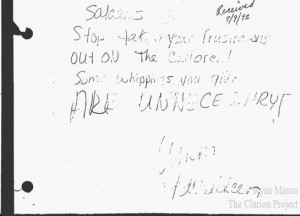 Salaams
Received
7/9/92
Stop taking your frustrations
out on The Children!
Some whippings you give
ARE UNNECESARY!
Ryan Mauro
The Clarion Project